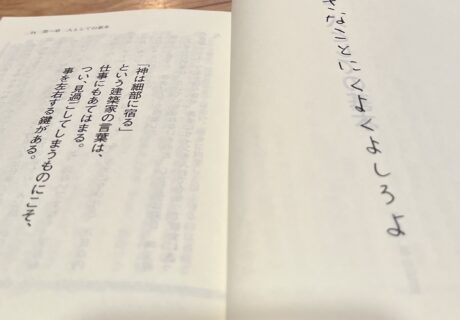 さなことにくよくよしろよ
「神は細部に宿る」
という建築家の言葉は、
仕事にもあてはまる。
つい、見過ごしてしまうものにこそ、
事を左右する鍵がある。